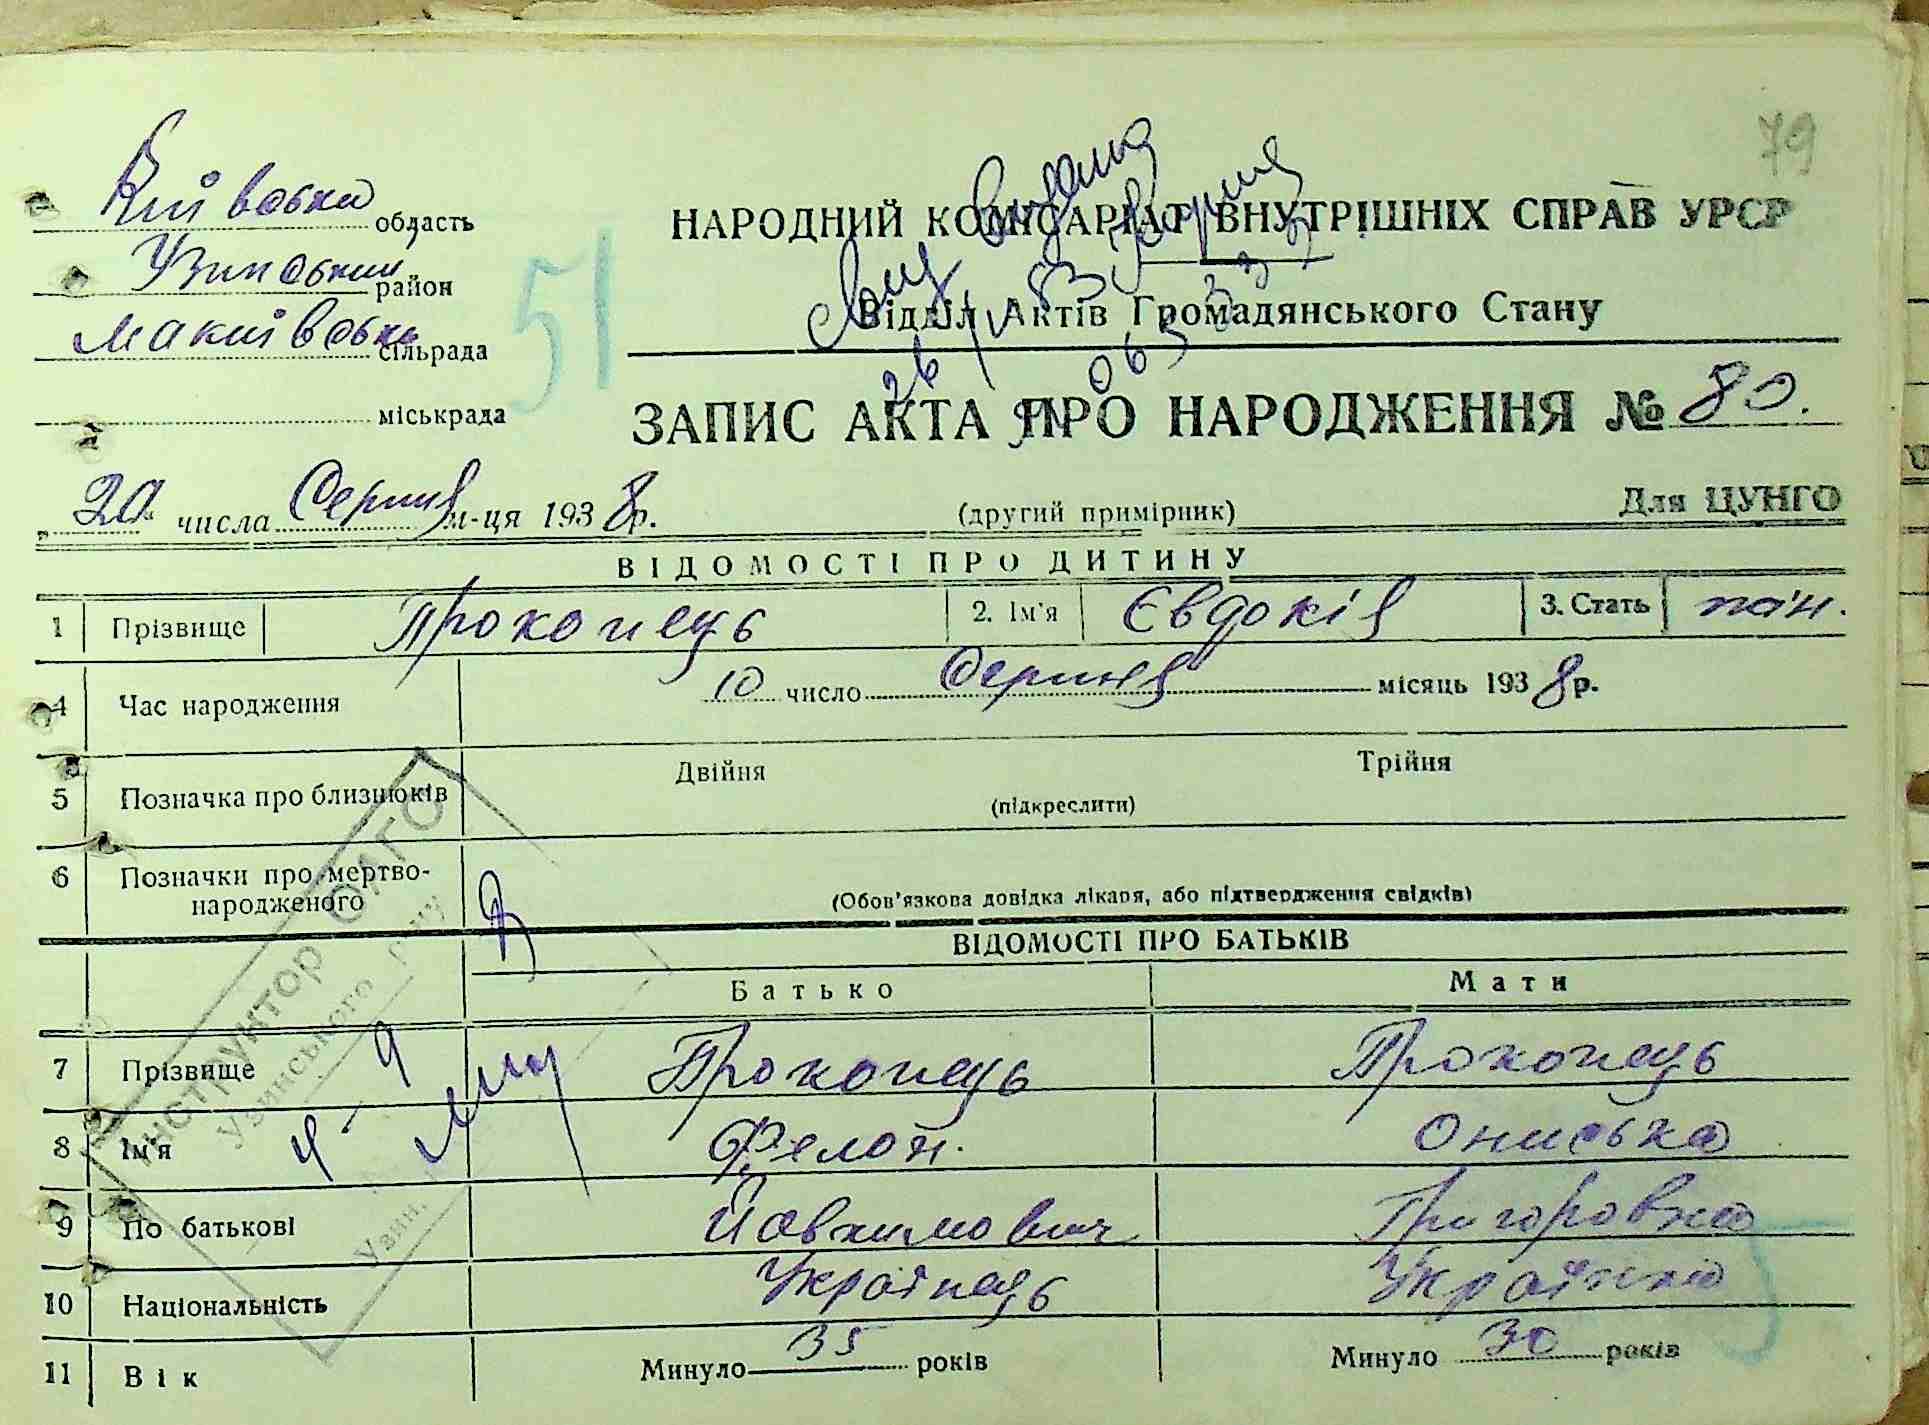 79
Київська область
Узинський район
Макиївська сільрада
міськрада
51
НАРОДНИЙ КОМІСАРІАТ ВНУТРІШНІХ СПРАВ УРСР
Відділ Актів Громадянського Стану
ЗАПИС АКТА ПРО НАРОДЖЕННЯ № 80.
"20" числа Серпня м-ця 1938 р.
(другий примірник)
Для ЦУНГО
ВІДОМОСТІ ПРО ДИТИНУ
1 Прізвище Прокопець 2. Ім'я Євдокія 3. Стать
4 Час народження 10 число Серпня місяць 1938 р.
5 Позначка про близнюків Двійня Трійня
(підкреслити)
6 Позначки про мертво-
народженого
(Обов'язкова довідка лікаря, або підтвердження свідків)
ВІДОМОСТІ ПРО БАТЬКІВ
Батько Мати
7 Прізвище Прокопець Прокопець
8 Ім'я Филон. Ониська
9 По батькові Йовхимович Григоровна
10 Національність Українець Українка
11 Вік Минуло 35 років Минуло 30 років
Інструктор ОАГС
Узинського р-ну